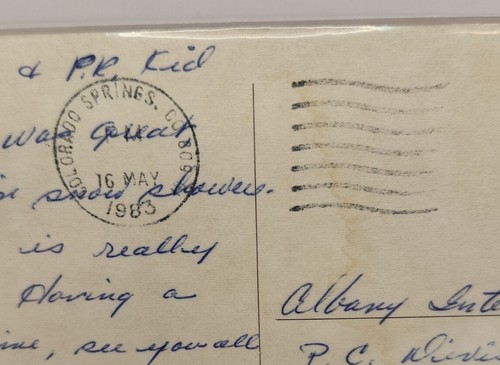 & P.R. Kid
COLORADO SPRINGS, CO 809
PM
16 MAY
1983
was great
snow showers.
is really
Having a
me, see you all
Albany Inte
P.C. Divisi